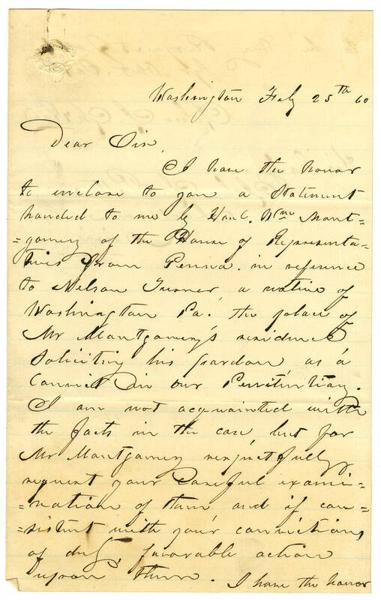 Washington Feb 25th 60
Dear Sir,
I have the honor
to inclose to you a Statement
handed to me by Honl. Wm Mont-
=gomery of the House of Representa-
tives from Penna. in reference
to Nelson Turner, a native of
Washington Pa. the place of
Mr Montgomery's residence
Soliciting his pardon as a
Convict in our Penitentiary.
I am not acquainted with
the facts in the case, but for
Mr Montgomery respectfully
request your careful exami-
=nation of them and if con-
=sistent with your convictions
of duty, favorable action
upon them. I have the honor